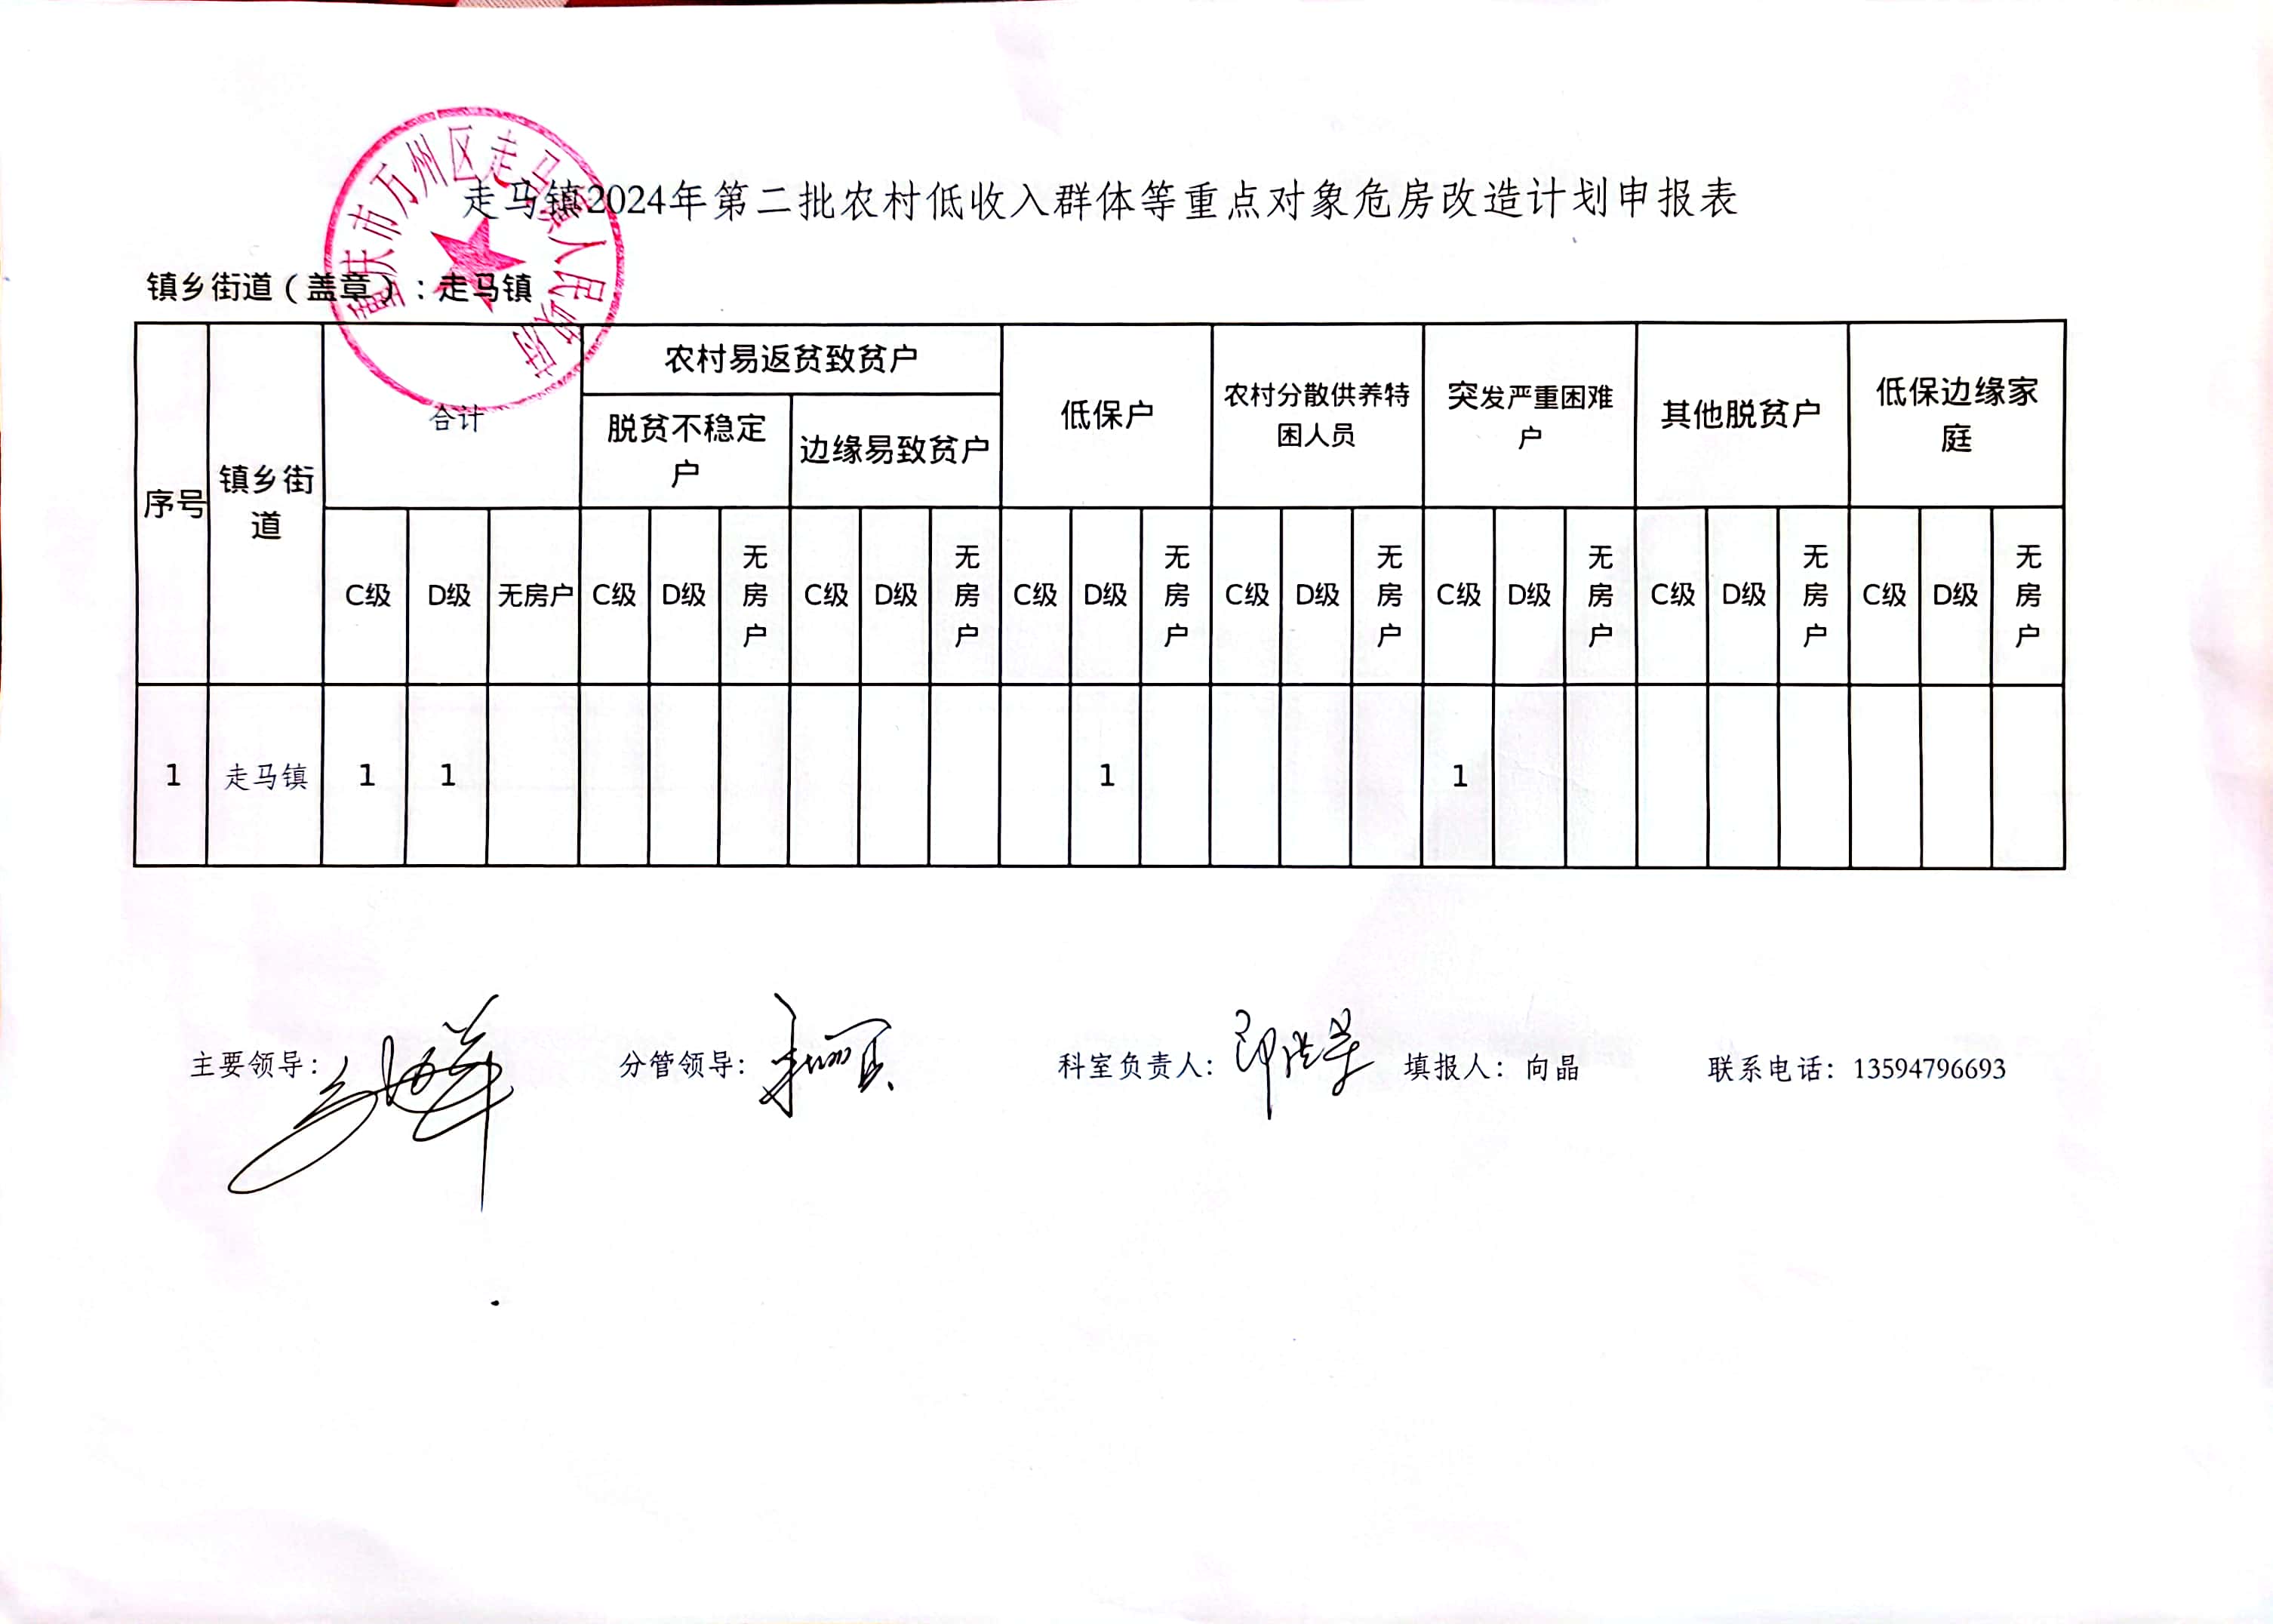 重庆市万州区走马镇人民政府
走马镇2024年第二批农村低收入群体等重点对象危房改造计划申报表
镇乡街道（盖章）：走马镇
序号 镇乡街道 合计 农村易返贫致贫户 低保户 农村分散供养特困人员 突发严重困难户 其他脱贫户 低保边缘家庭
脱贫不稳定户 边缘易致贫户
C级 D级 无房户 C级 D级 无房户 C级 D级 无房户 C级 D级 无房户 C级 D级 无房户 C级 D级 无房户 C级 D级 无房户 C级 D级 无房户
1 走马镇 1 1 1 1
主要领导： 分管领导： 科室负责人： 填报人：向晶 联系电话：13594796693